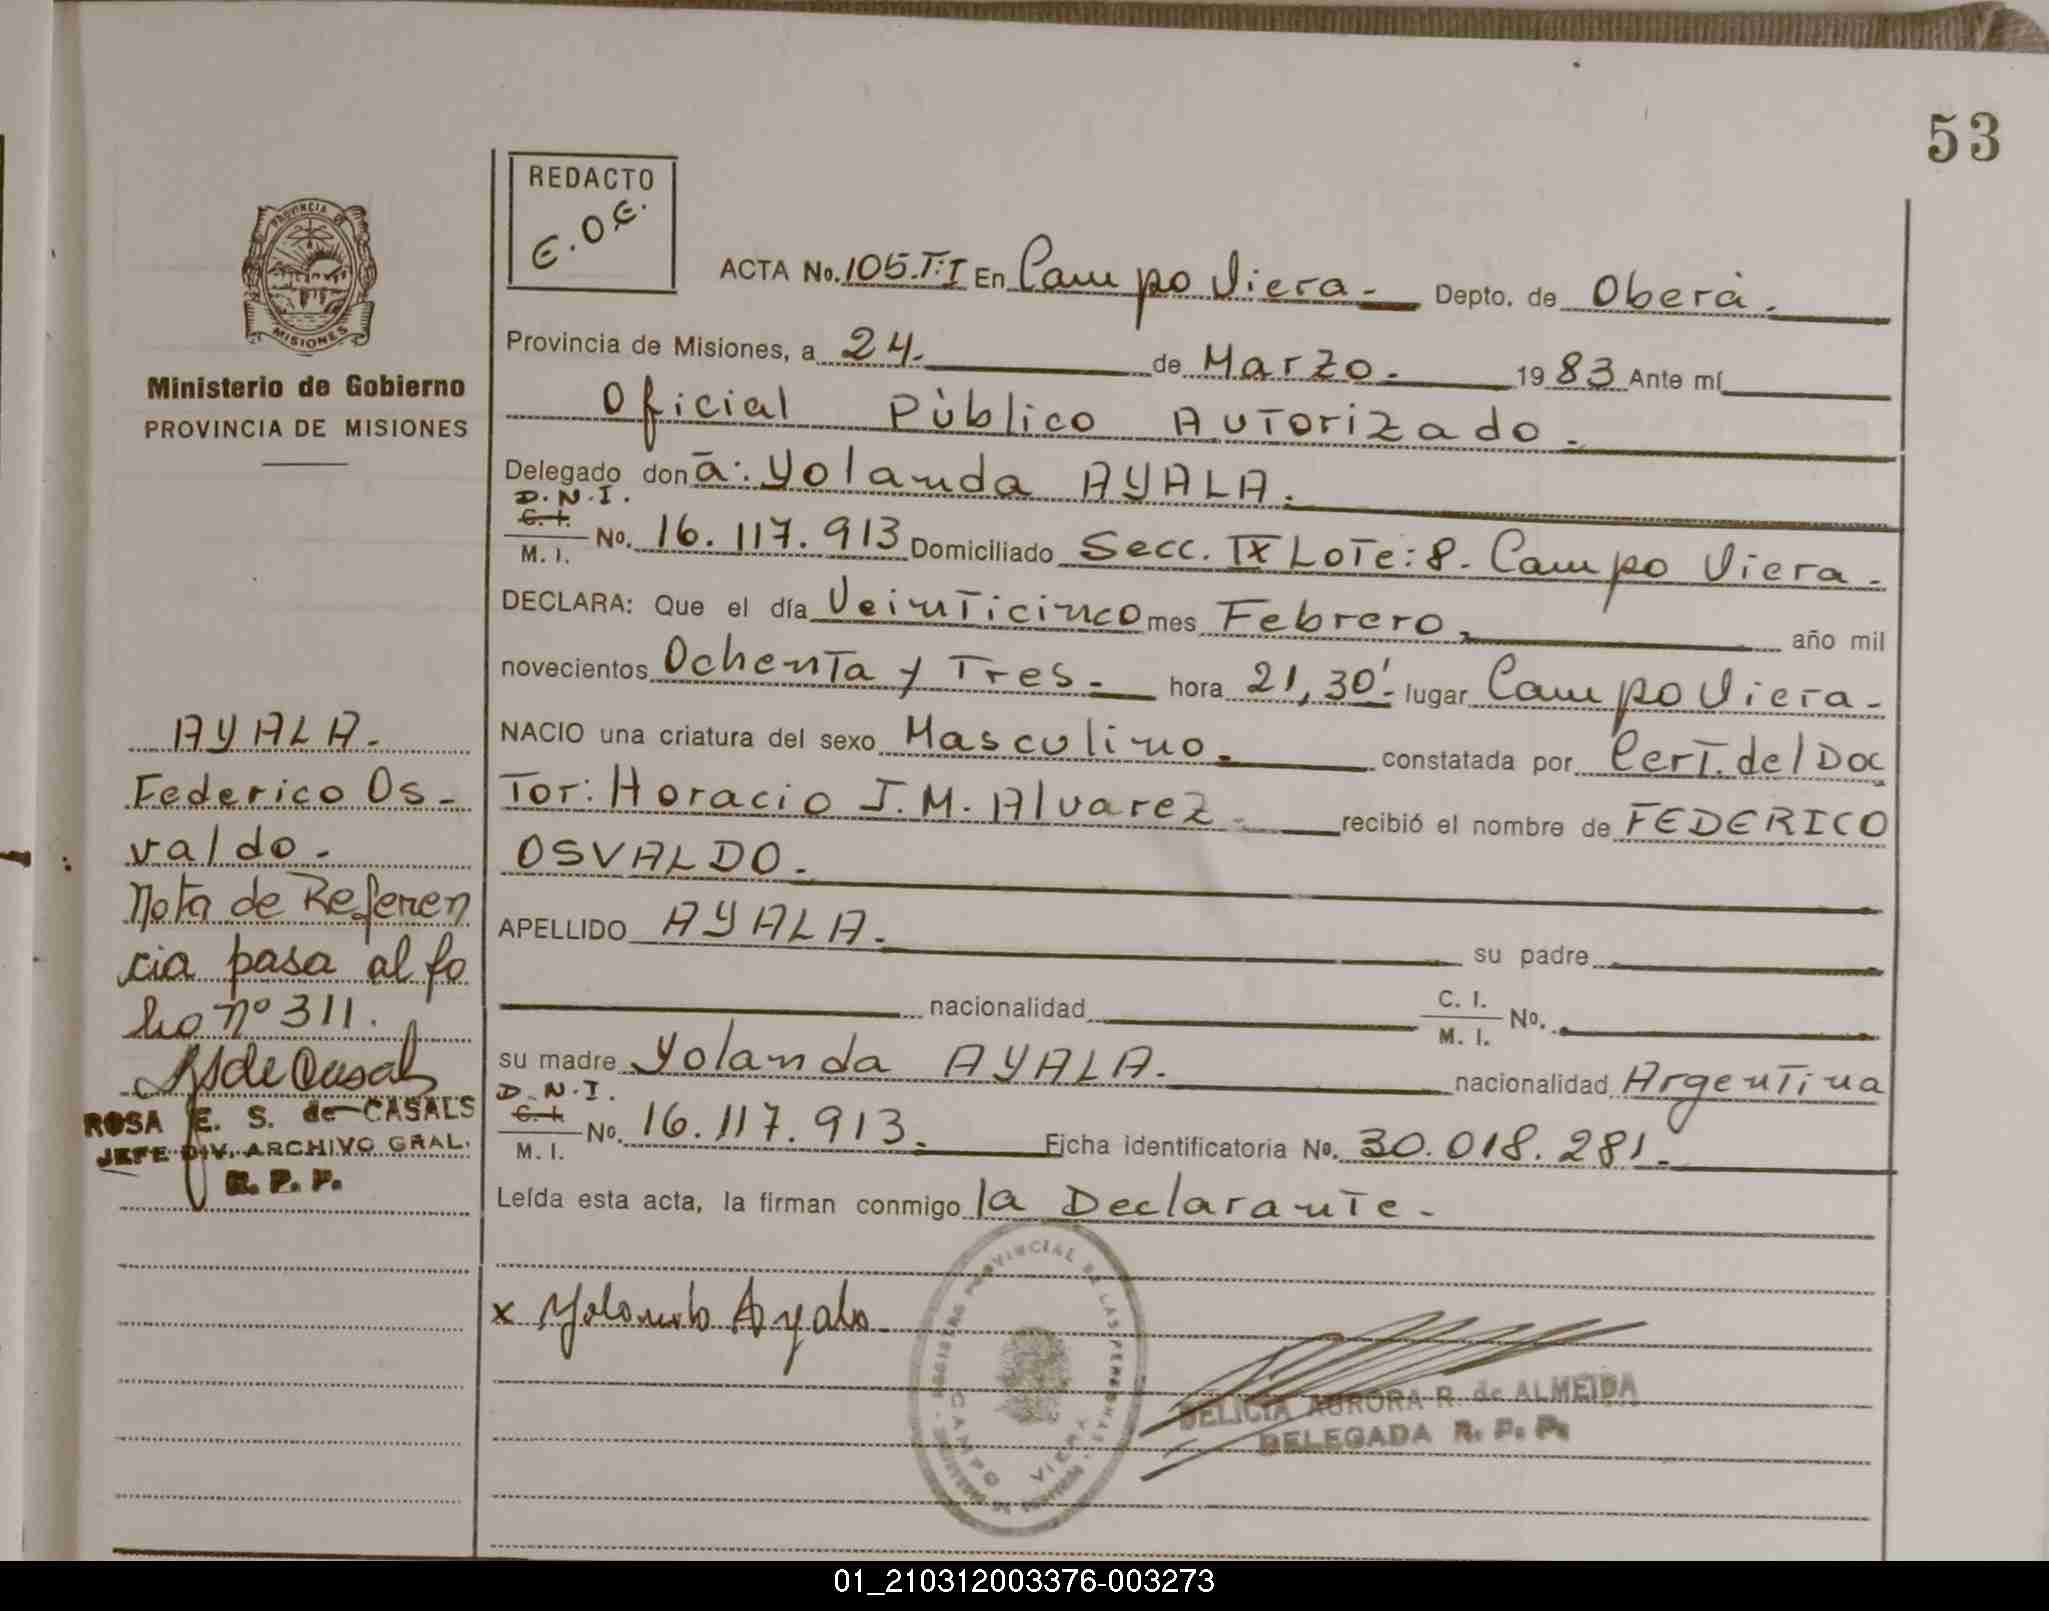 53
REDACTO
E.O.E.
PROVINCIA DE
MISIONES
Ministerio de Gobierno
PROVINCIA DE MISIONES
ACTA No. 105.T:I En Campo Viera.- Depto. de Oberá.
Provincia de Misiones, a 24. de Marzo. 1983 Ante mí
Oficial Público Autorizado.
Delegado don ã: Yolanda AYALA.
D.N.I.
C.I.
M. I. No. 16.117.913 Domiciliado Secc. IX Lote: 8. Campo Viera.
DECLARA: Que el día Veinticinco mes Febrero, año mil
novecientos Ochenta y Tres.- hora 21,30'.- lugar Campo Viera.-
NACIO una criatura del sexo Masculino. constatada por Cert. del Doc
Tor: Horacio J.M. Alvarez. recibió el nombre de FEDERICO
OSVALDO.-
APELLIDO AYALA. su padre
nacionalidad C. I.
M. I. No.
su madre Yolanda AYALA. nacionalidad Argentina
D.N.I.
C.I.
M. I. No. 16.117.913. Ficha identificatoria No. 30.018.281.
Leída esta acta, la firman conmigo la Declarante.-
AYALA.-
Federico Os-
valdo.-
Nota de Referen
cia pasa al fo
lio nº 311.
RSdeCasals
ROSA E. S. de CASALS
JEFE DIV. ARCHIVO GRAL.
R. P. P.
x Yolanda Ayala
REGISTRO PROVINCIAL DE LAS PERSONAS
CAMPO VIERA
DELICIA AURORA R. de ALMEIDA
DELEGADA R. P. P.
01_210312003376-003273